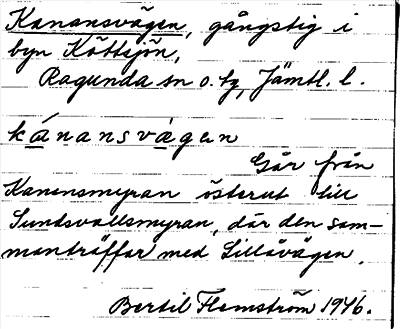 Kanansvägen, gångstig i
byn Köttsjön,
Ragunda sn o. tg, Jämtl. l.
kánansvàgen
Går från
Kanansmyran österut till
Sundsvallsmyran, där den sam-
manträffar med Lillåvägen.
Bertil Flemström 1946.